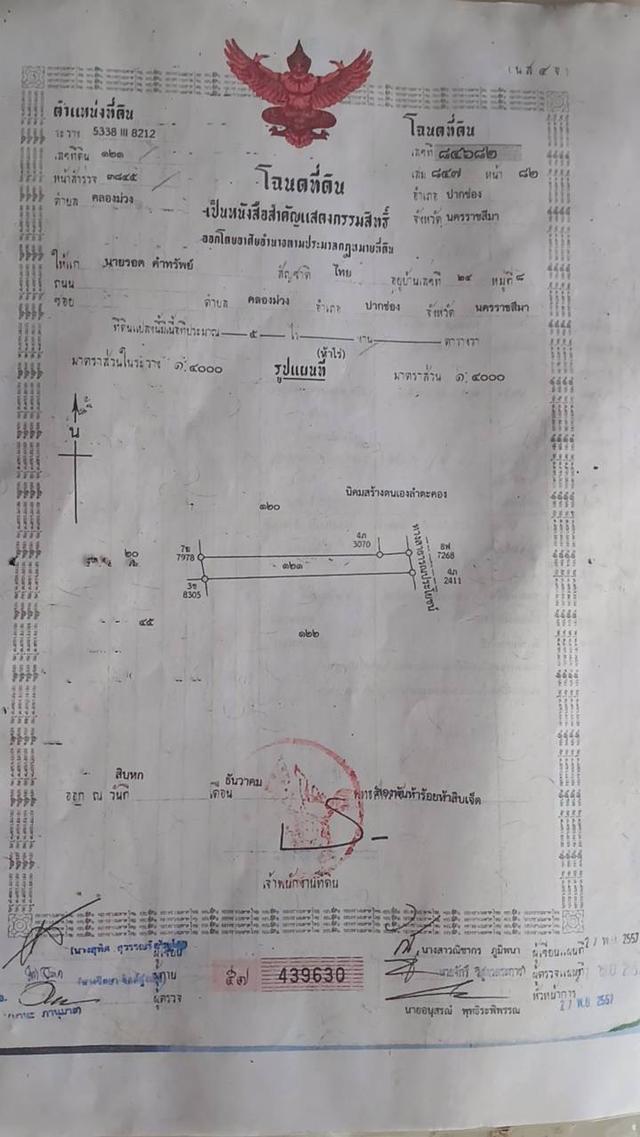 (น.ส. ๔ จ)
ตำแหน่งที่ดิน
ระวาง 5338 III 8212
เลขที่ดิน ๑๒๑
หน้าสำรวจ ๓๘๔๕
ตำบล คลองม่วง
โฉนดที่ดิน
เลขที่ ๘๔๖๘๒
เล่ม ๘๔๗ หน้า ๘๒
อำเภอ ปากช่อง
จังหวัด นครราชสีมา
โฉนดที่ดิน
เป็นหนังสือสำคัญแสดงกรรมสิทธิ์
ออกโดยอาศัยอำนาจตามประมวลกฎหมายที่ดิน
ให้แก่ นายรอด คำทรัพย์ สัญชาติ ไทย อยู่บ้านเลขที่ ๒๔ หมู่ที่ ๘
ถนน
ซอย ตำบล คลองม่วง อำเภอ ปากช่อง จังหวัด นครราชสีมา
ที่ดินแปลงนี้มีเนื้อที่ประมาณ ๕ ไร่ งาน ตารางวา
(ห้าไร่)
มาตราส่วนในระวาง ๑:๔๐๐๐ รูปแผนที่ มาตราส่วน ๑:๔๐๐๐
น
นิคมสร้างตนเองลำตะคอง
๑๒๐
7ข 7978
4ภ 3070
8ฟ 7268
๑๒๑
ทางสาธารณประโยชน์
3ข 8305
4ภ 2411
๒๐
๔๕
๑๒๒
ออก ณ วันที่ สิบหก เดือน ธันวาคม สองพันห้าร้อยห้าสิบเจ็ด
เจ้าพนักงานที่ดิน
ผู้เขียน
ผู้ตรวจ
๕๗ 439630
(นางสาวณิชากร ภูมิพนา ผู้เขียนแผนที่ 27 พ.ย. 2557
ผู้ตรวจแผนที่
หัวหน้าการ
27 พ.ย. 2557
นายอนุสรณ์ พุทธิระพิพรรณ